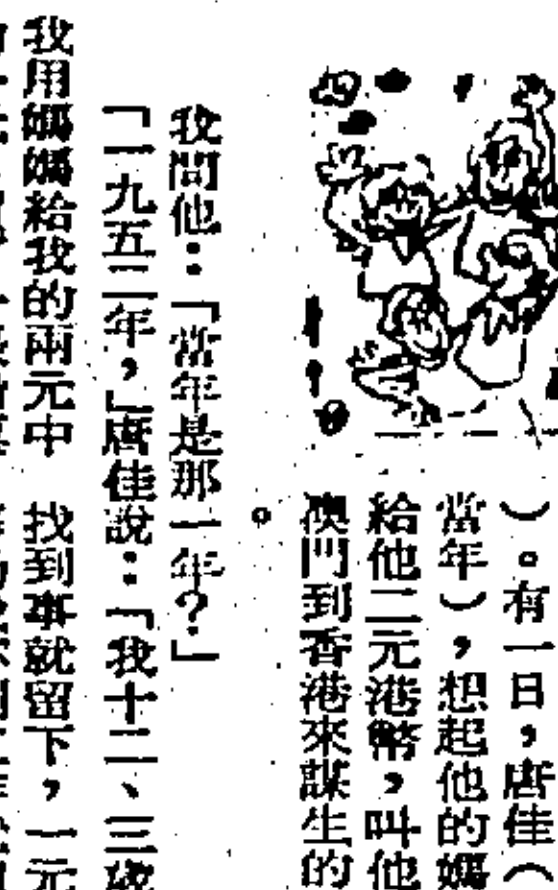 ）。有一日，唐佳（
當年），想起他的媽
給他二元港幣，叫他
澳門到香港來謀生的
。
我問他：「當年是那一年？」
「一九五二年，」唐佳說：「我十二、三歲
我用媽媽給我的兩元中
找到事就留下，一元